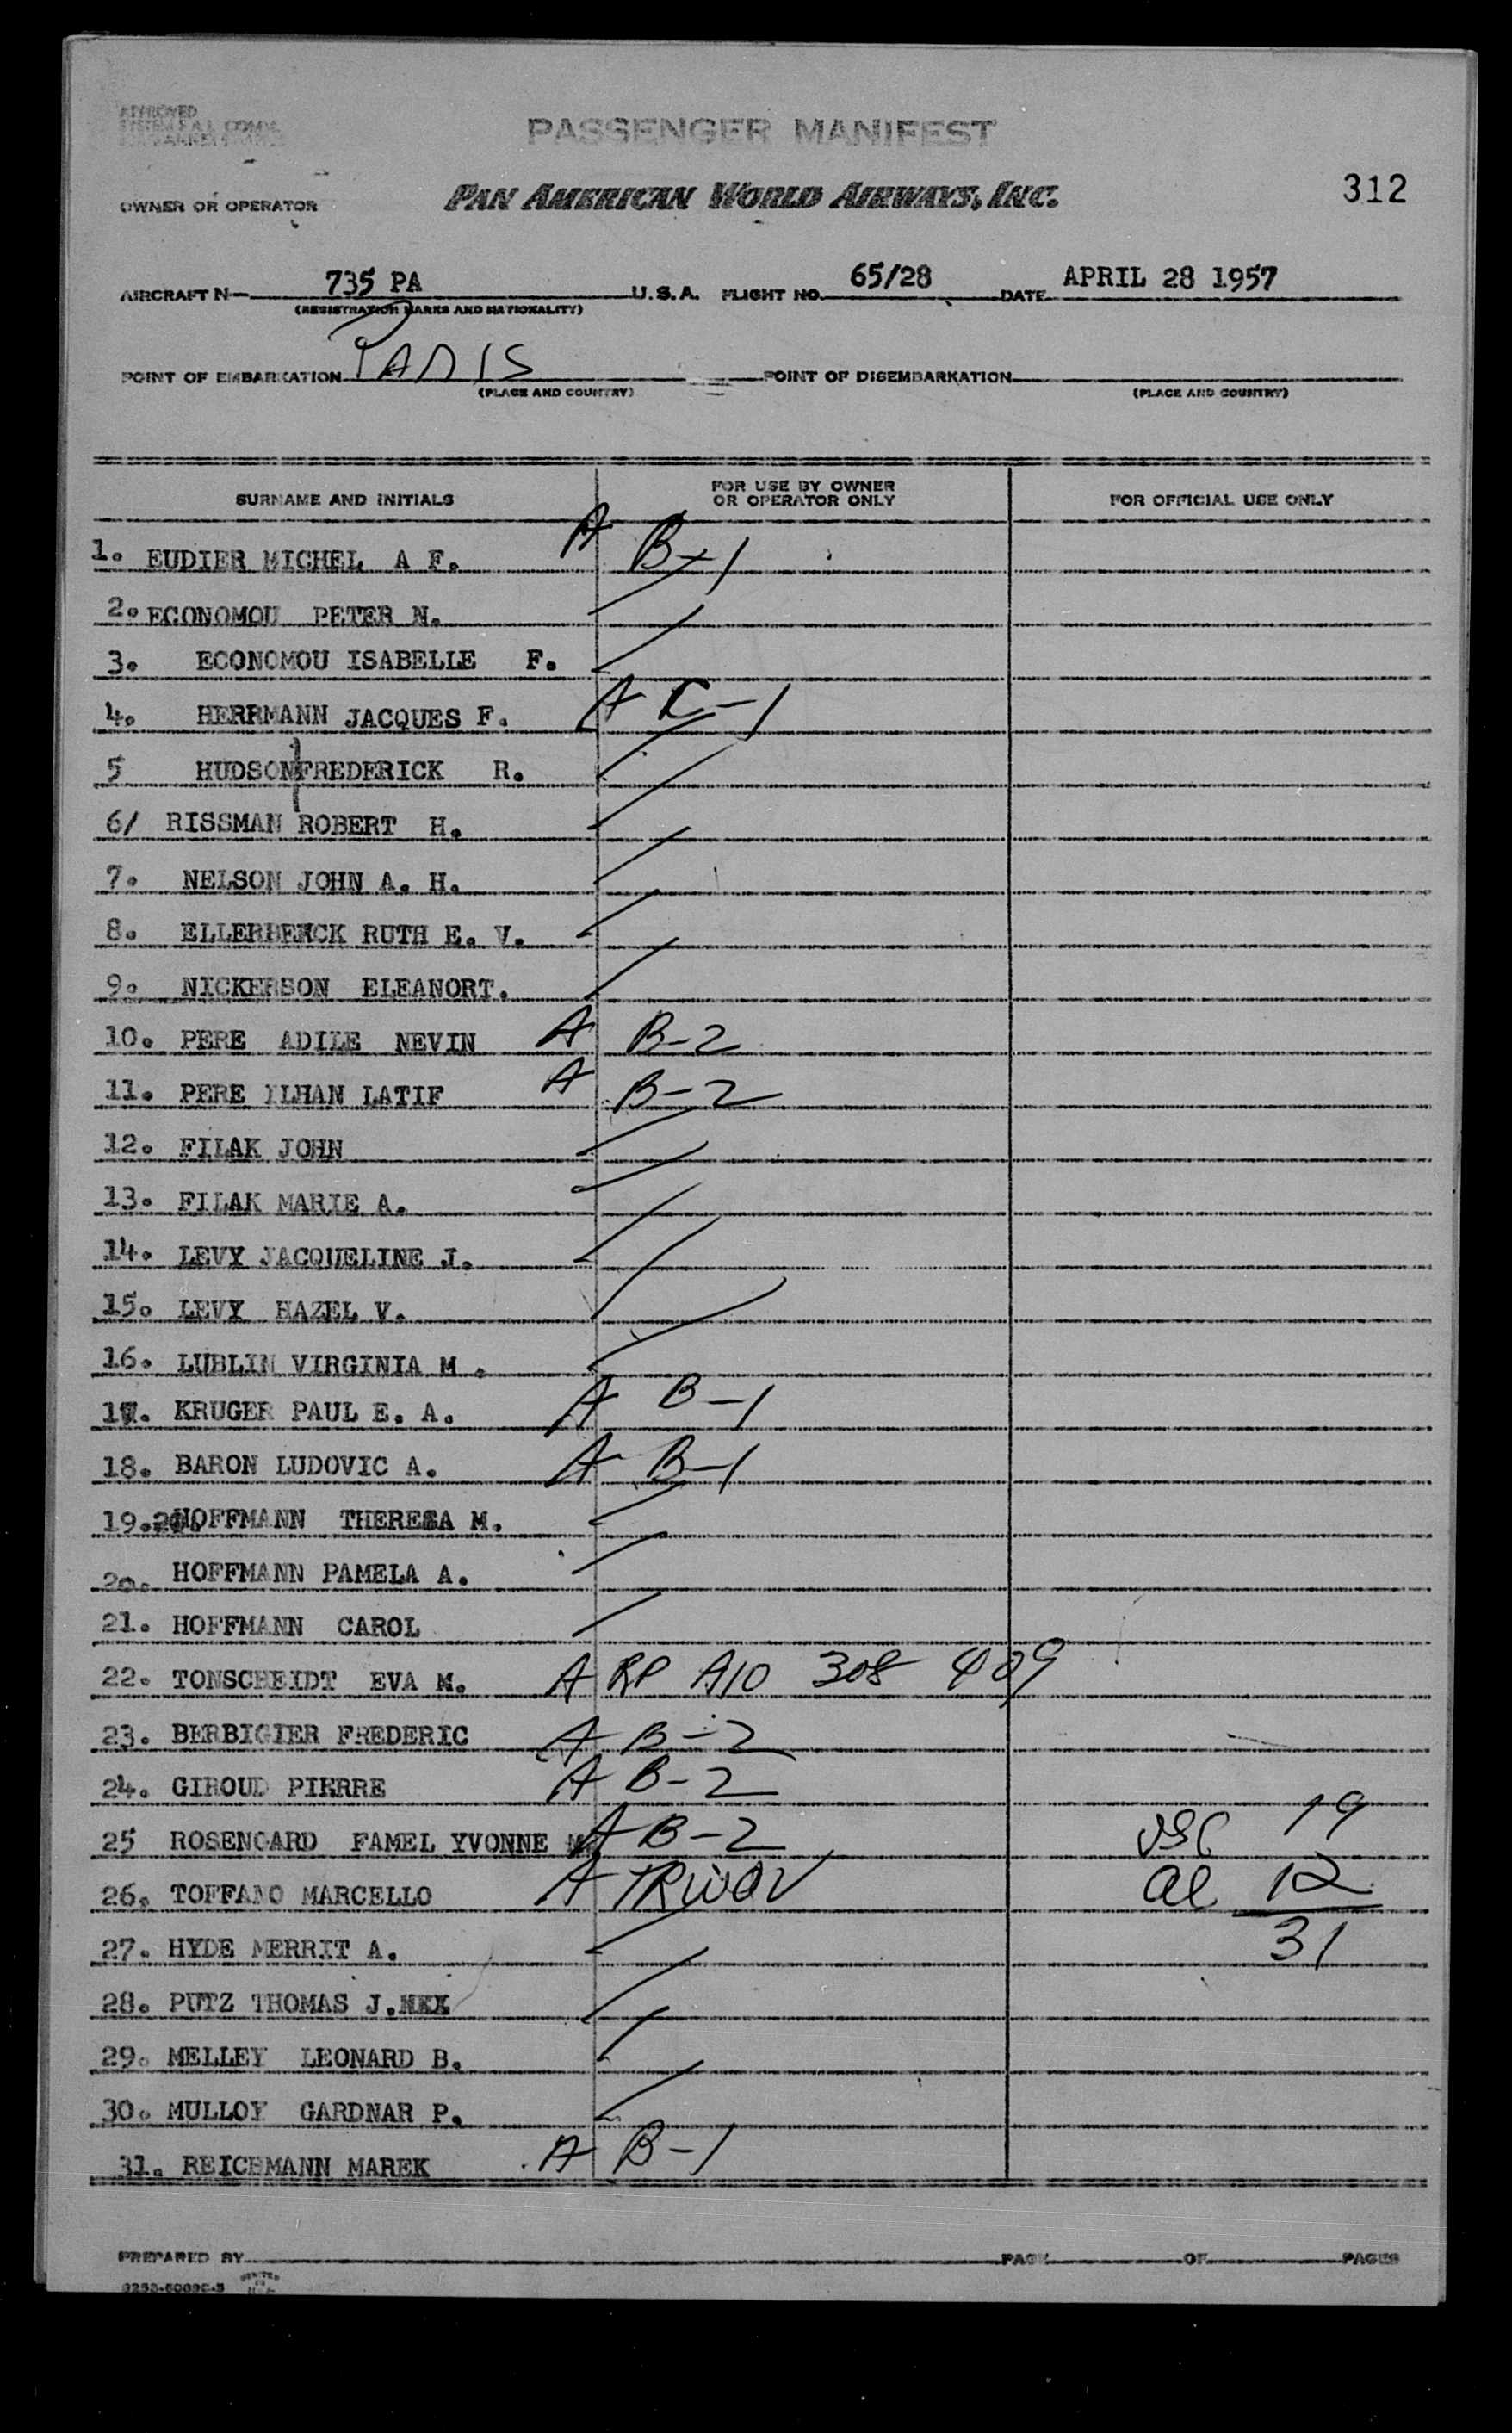 APPROVED
PASSENGER MANIFEST
OWNER OR OPERATOR PAN AMERICAN WORLD AIRWAYS, INC. 312
AIRCRAFT N— 735 PA U.S.A. FLIGHT NO. 65/28 DATE APRIL 28 1957
(REGISTRATION MARKS AND NATIONALITY)
POINT OF EMBARKATION PARIS POINT OF DISEMBARKATION
(PLACE AND COUNTRY) (PLACE AND COUNTRY)
SURNAME AND INITIALS FOR USE BY OWNER OR OPERATOR ONLY FOR OFFICIAL USE ONLY
1. EUDIER MICHEL A F. A B-1
2. ECONOMOU PETER N.
3. ECONOMOU ISABELLE F.
4. HERRMANN JACQUES F. A C-1
5 HUDSON FREDERICK R.
6/ RISSMAN ROBERT H.
7. NELSON JOHN A. H.
8. RUTH E. V.
9. NICKERSON ELEANORT.
10. PERE ADILE NEVIN A B-2
11. PERE ILHAN LATIF A B-2
12. FILAK JOHN
13. FILAK MARIE A.
14. LEVY JACQUELINE J.
15. LEVY HAZEL V.
16. LUBLIN VIRGINIA M.
17. KRUGER PAUL E. A. A B-1
18. BARON LUDOVIC A. A B-1
19. HOFFMANN THERESA M.
20. HOFFMANN PAMELA A.
21. HOFFMANN CAROL
22. TONSCHEIDT EVA M. A RP A10 308 409
23. BERBIGIER FREDERIC A B-2
24. GIROUD PIERRE A B-2
25 ROSENGARD FAMEL YVONNE M. A B-2 USC 19
26. TOFFANO MARCELLO A TRWOV al 12
27. HYDE MERRIT A. 31
28. PUTZ THOMAS J.
29. MELLEY LEONARD B.
30. MULLOY GARDNAR P.
31. REICHMANN MAREK A B-1
PREPARED BY PAGE OF PAGES